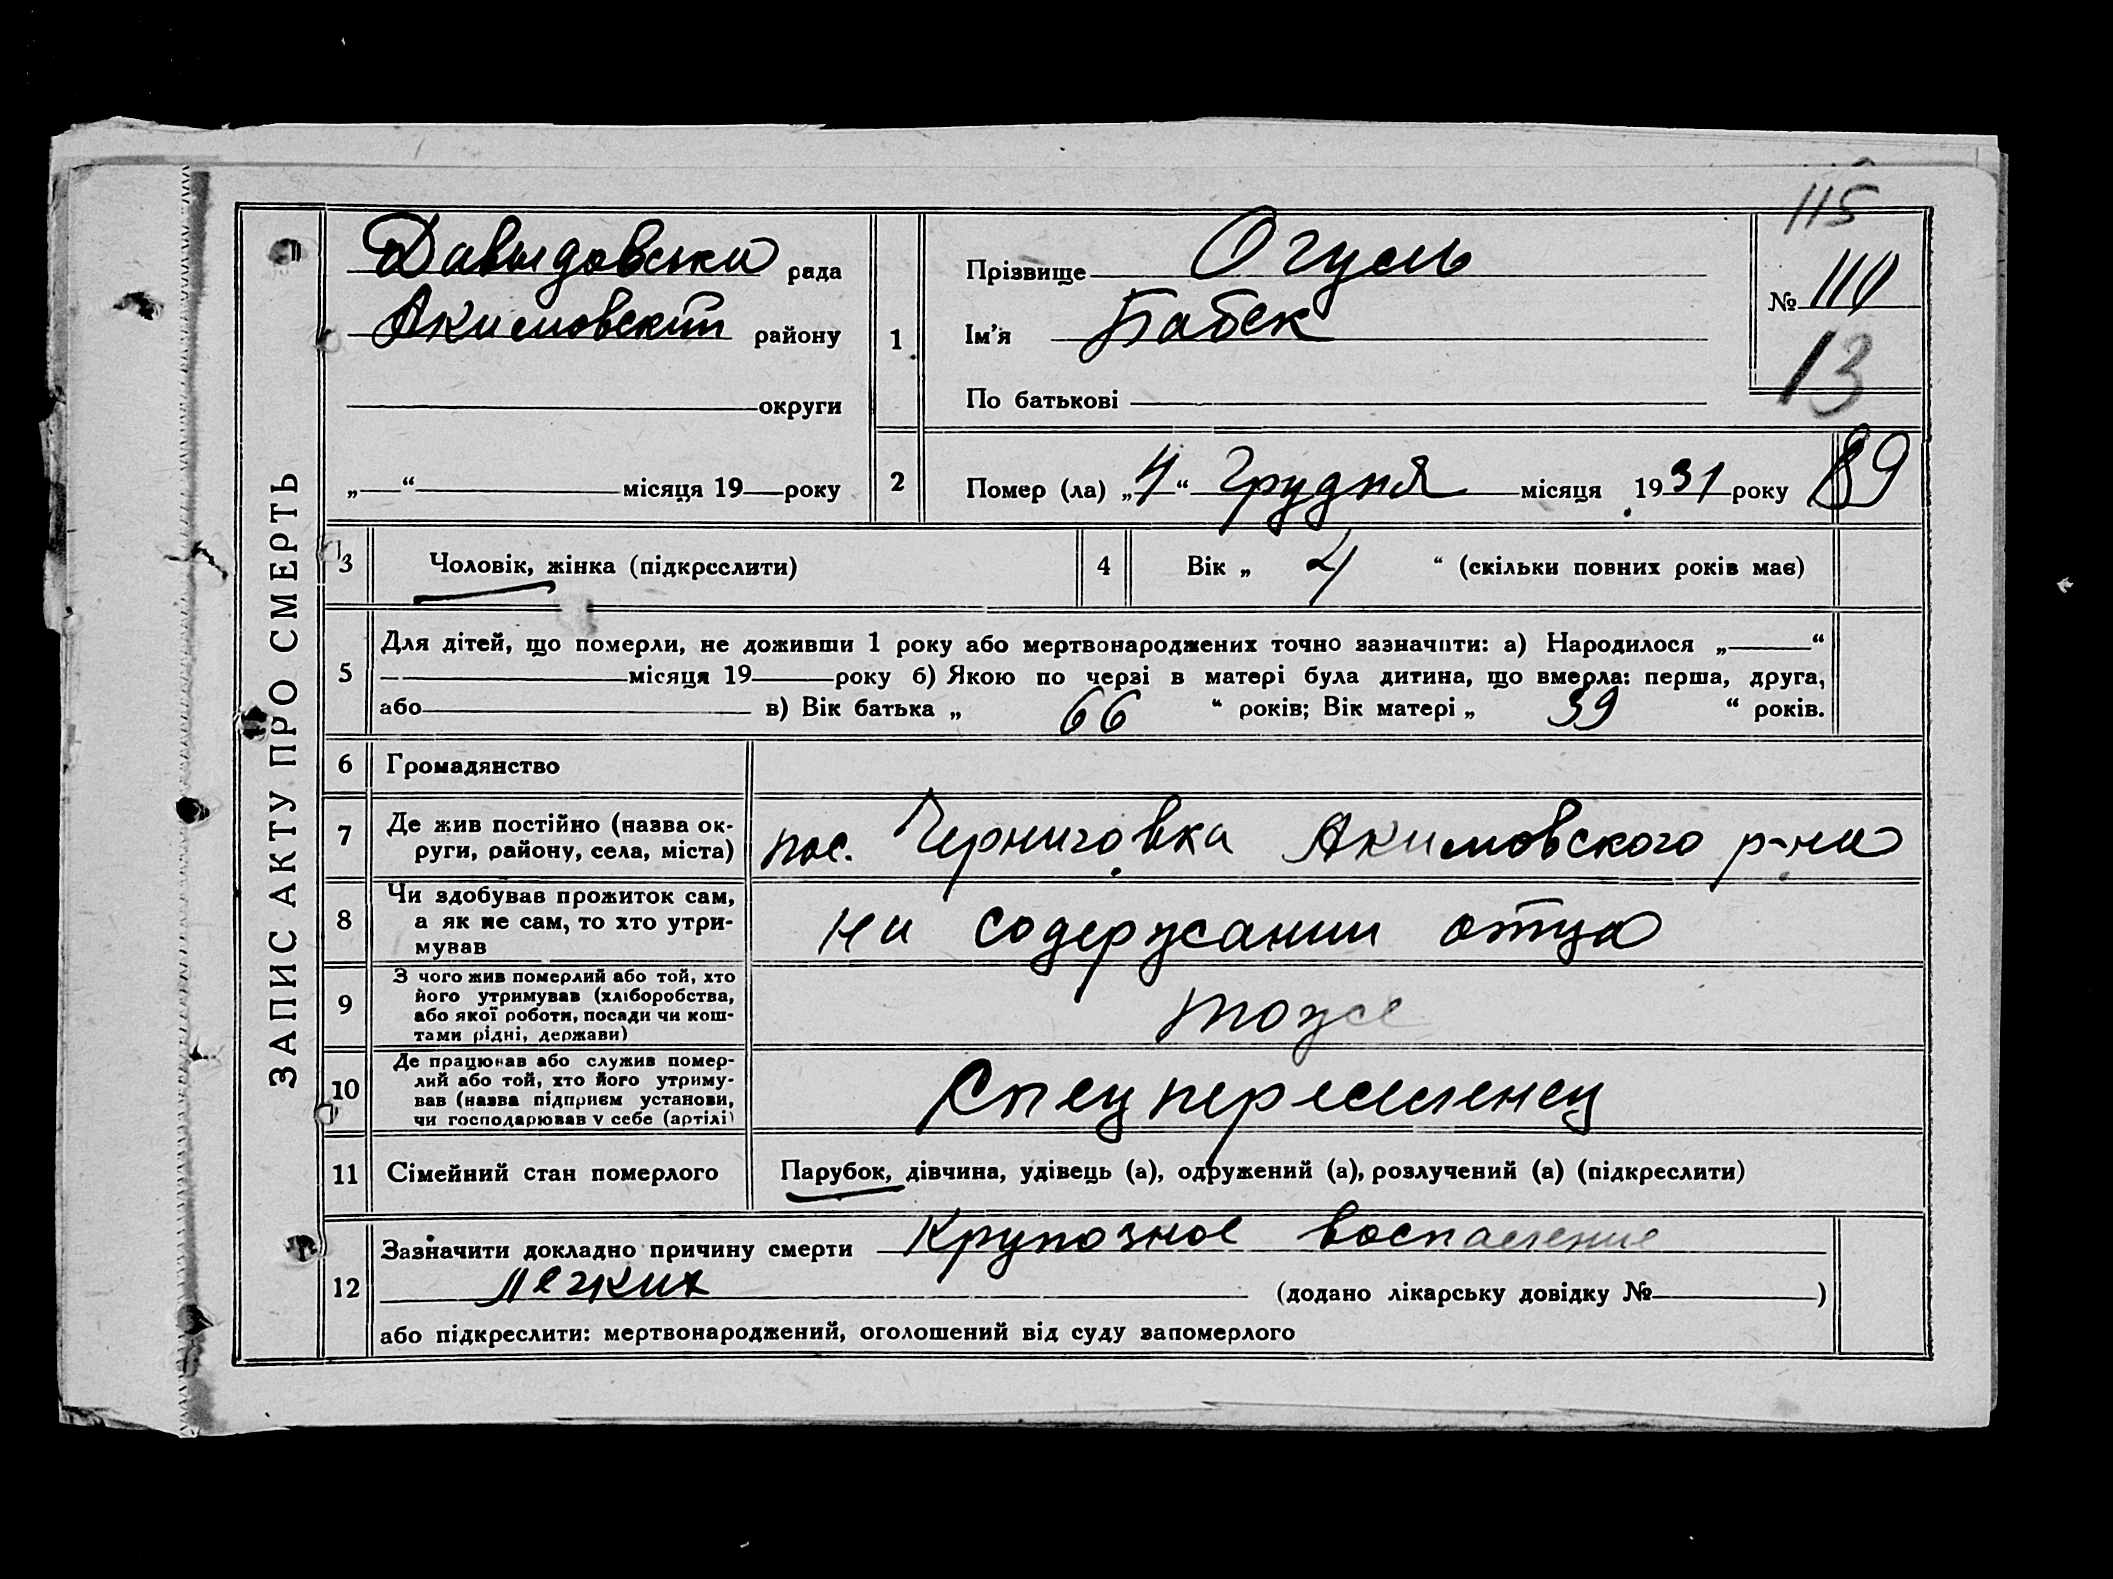 ЗАПИС АКТУ ПРО СМЕРТЬ
115
Давыдовська рада
Акимовский району
округи
„ “ місяця 19 року
1
Прізвище Огуль
Ім'я Бабек
По батькові
№ 110
13
2
Помер (ла) „4“ Грудня місяця 1931 року
89
3
Чоловік, жінка (підкреслити)
4
Вік „ 4 “ (скільки повних років має)
5
Для дітей, що померли, не доживши 1 року або мертвонароджених точно зазначити: а) Народилося „ “
місяця 19 року б) Якою по черзі в матері була дитина, що вмерла: перша, друга,
або в) Вік батька „ 66 “ років; Вік матері „ 39 “ років.
6
Громадянство
7
Де жив постійно (назва ок-
руги, району, села, міста)
пос. Черниговка Акимовского р-на
8
Чи здобував прожиток сам,
а як не сам, то хто утри-
мував
на содержании отца
9
З чого жив померлий або той, хто
його утримував (хліборобства,
або якої роботи, посади чи кош-
тами рідні, держави)
тоже
10
Де працював або служив помер-
лий або той, хто його утриму-
вав (назва підприєм установи,
чи господарював у себе (артілі)
Спецпереселенец
11
Сімейний стан померлого
Парубок, дівчина, удівець (а), одружений (а), розлучений (а) (підкреслити)
12
Зазначити докладно причину смерти Крупозное воспаление
легких (додано лікарську довідку № )
або підкреслити: мертвонароджений, оголошений від суду запомерлого